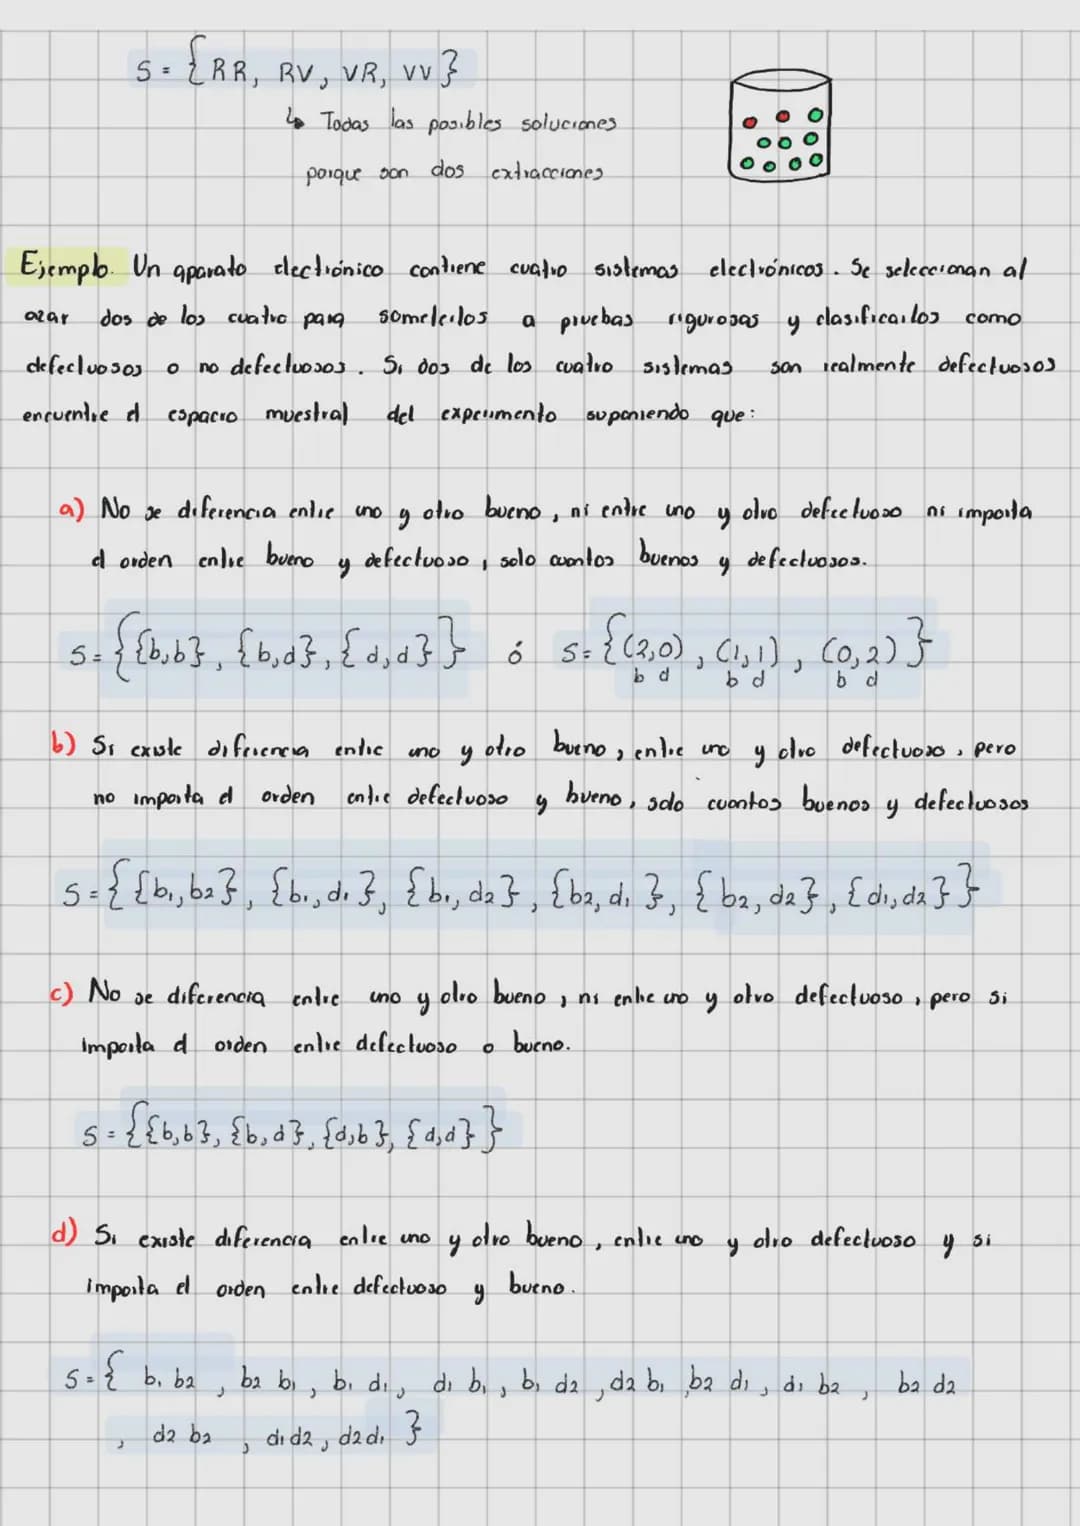 S = { RR, RV, VR, VV }
↳ Todas las posibles soluciones
porque son dos extracciones
Ejemplo. Un aparato electrónico contiene cuatro sistemas electrónicos. Se seleccionan al
azar dos de los cuatro para someterlos a pruebas rigurosas y clasificarlos como
defectuosos o no defectuosos. Si dos de los cuatro sistemas son realmente defectuosos
encuentre el espacio muestral del experimento suponiendo que:
a) No se diferencia entre uno y otro bueno, ni entre uno y otro defectuoso ni importa
el orden entre bueno y defectuoso, solo cuantos buenos y defectuosos.
S = { {b,b}, {b,d}, {d,d} } ó S = { (2,0), (1,1), (0,2) }
b d b d b d
b) Si existe diferencia entre uno y otro bueno, entre uno y otro defectuoso, pero
no importa el orden entre defectuoso y bueno, solo cuantos buenos y defectuosos
S = { {b₁,b₂}, {b₁,d₁}, {b₁,d₂}, {b₂,d₁}, {b₂,d₂}, {d₁,d₂} }
c) No se diferencia entre uno y otro bueno, ni entre uno y otro defectuoso, pero si
importa el orden entre defectuoso o bueno.
S = { {b,b}, {b,d}, {d,b}, {d,d} }
d) Si existe diferencia entre uno y otro bueno, entre uno y otro defectuoso y si
importa el orden entre defectuoso y bueno.
S = { b₁ b₂, b₂ b₁, b₁ d₁, d₁ b₁, b₁ d₂, d₂ b₁, b₂ d₁, d₁ b₂, b₂ d₂
, d₂ b₂, d₁ d₂, d₂ d₁ }